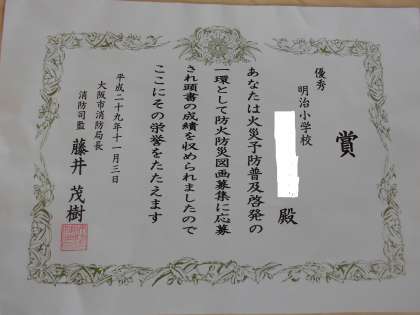 賞
優秀
明治小学校
殿
あなたは火災予防普及啓発の
一環として防火防災図画募集に応募
され頭書の成績を収められましたので
ここにその栄誉をたたえます
平成二十九年十一月三日
大阪市消防局長
消防司監 藤井茂樹